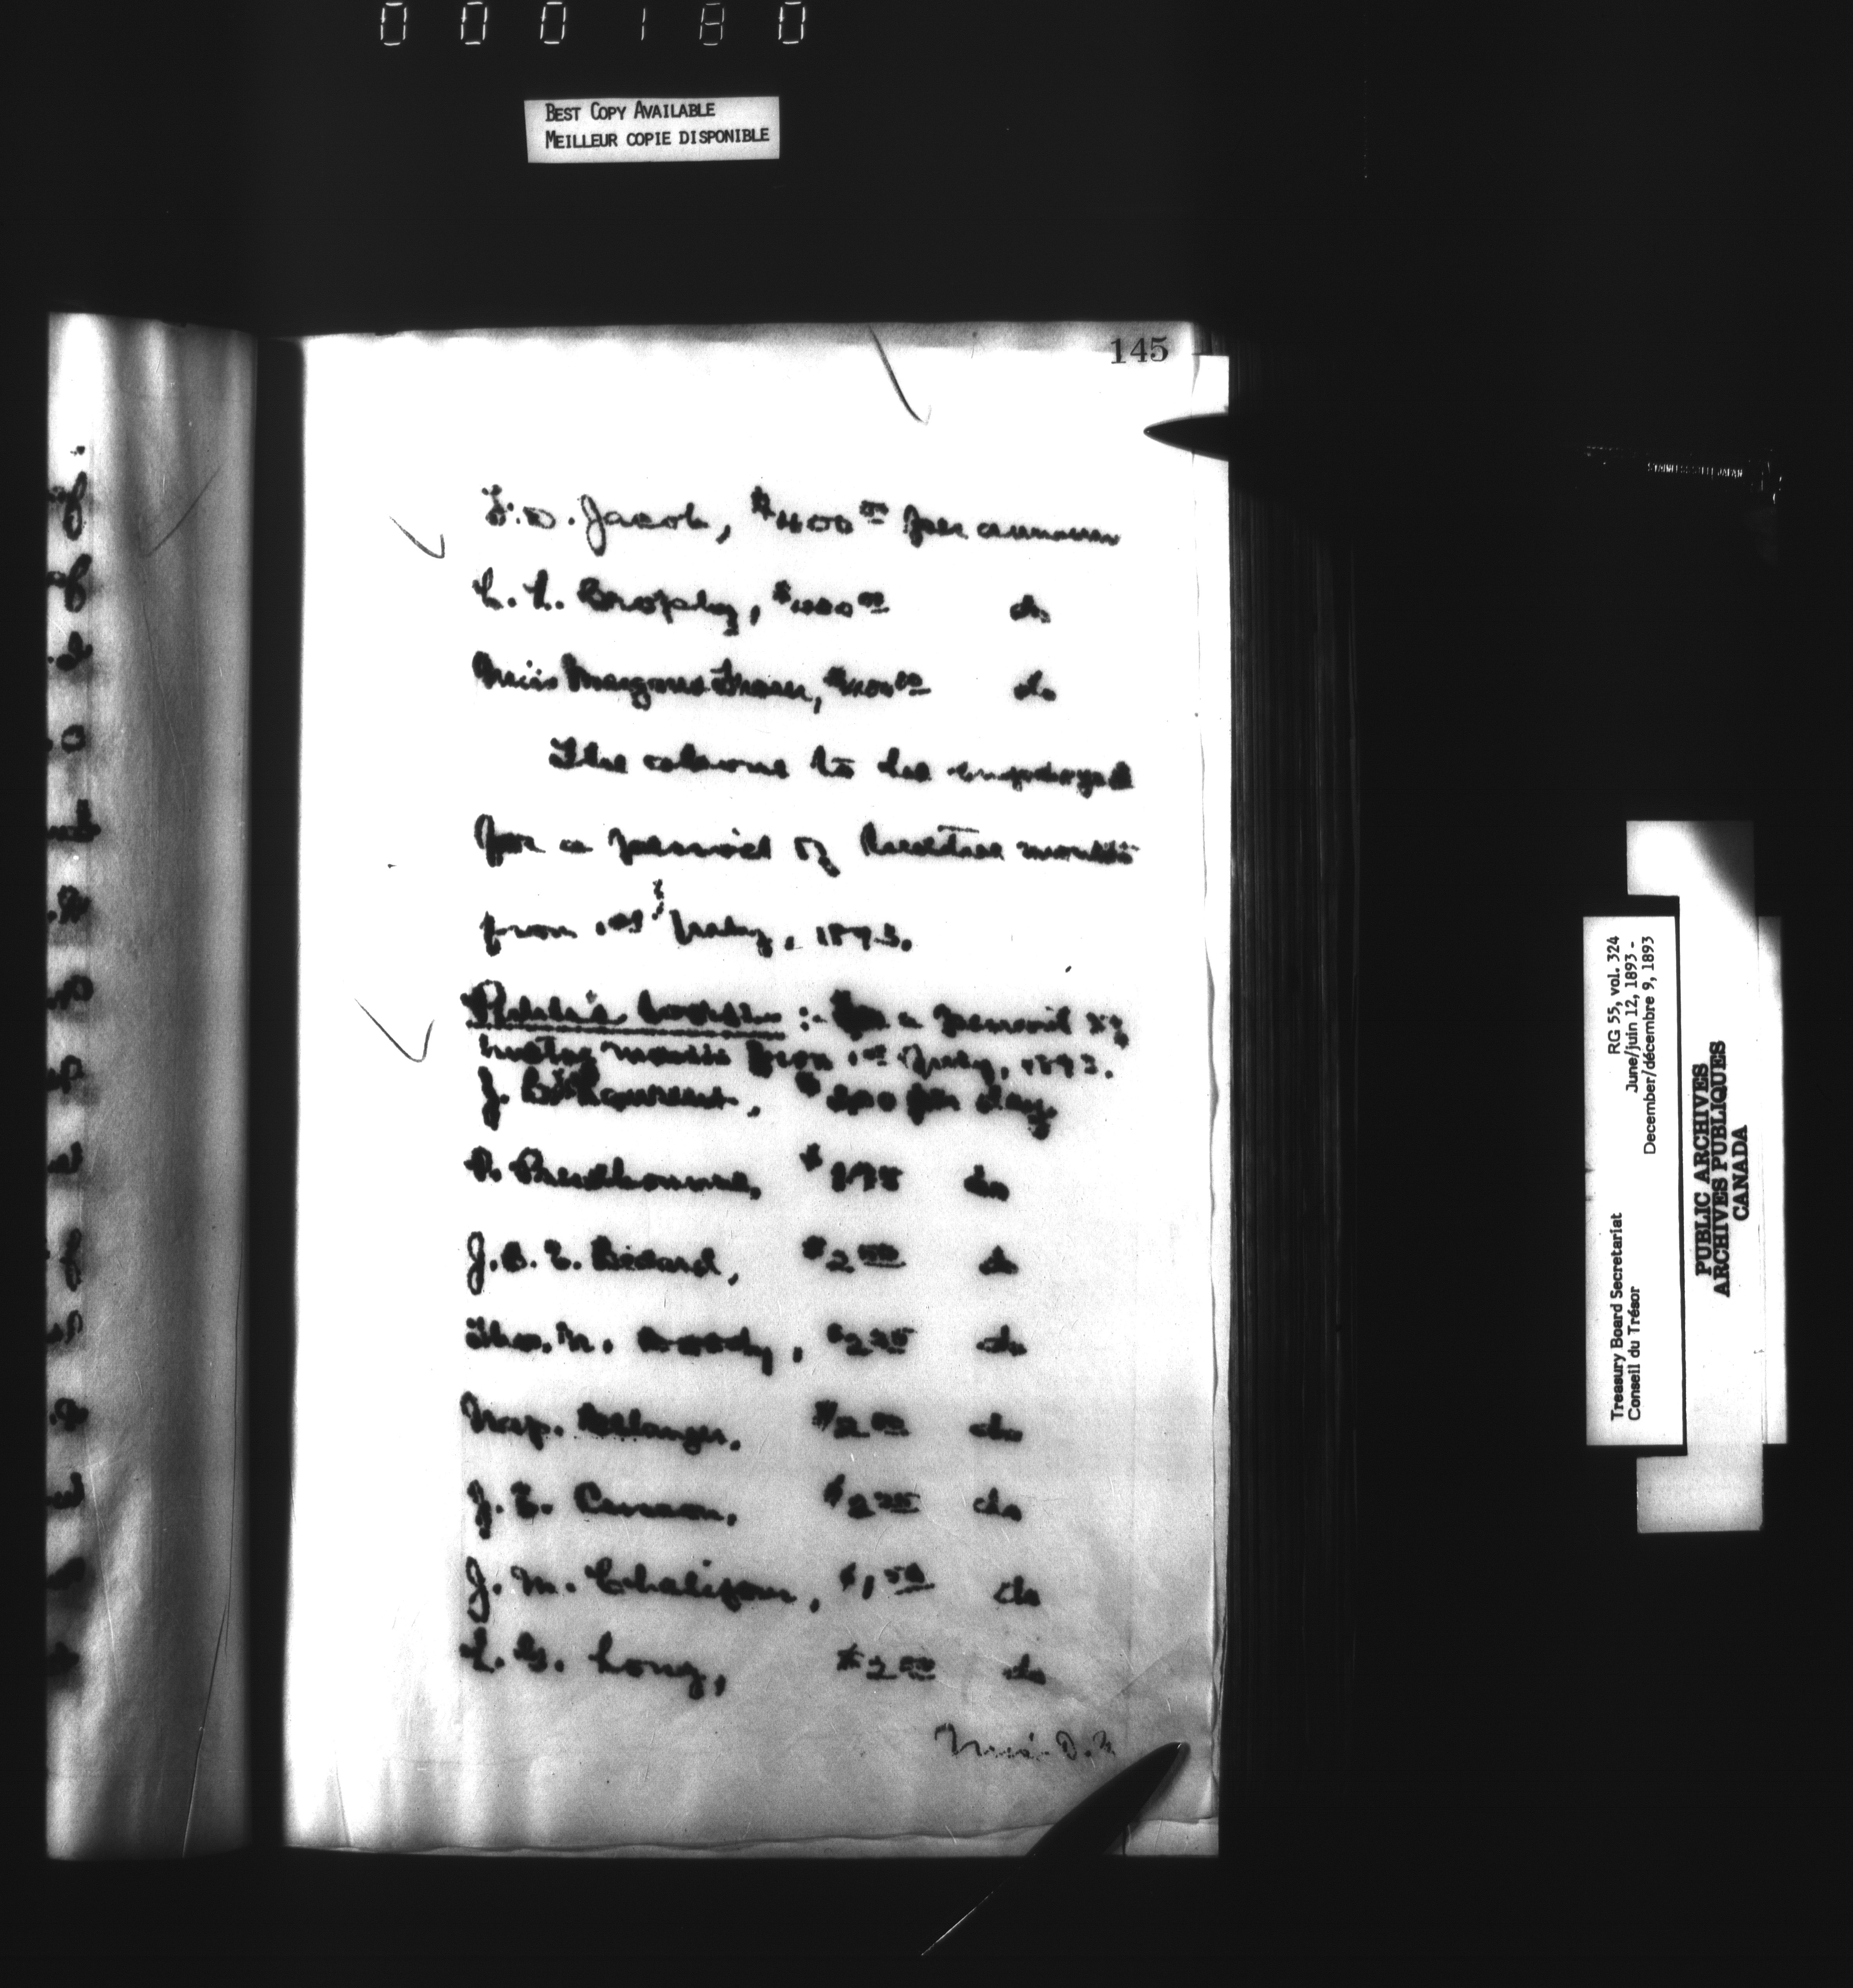 000180
BEST COPY AVAILABLE
MEILLEUR COPIE DISPONIBLE
145
F. D. Jacob, $400 00 per annum
C. L. Brophy, $400 00 do
Miss Margaret Fraser, $400 00 do
The above to be employed
for a period of twelve months
from 1st July, 1893.
Public Works :- For a period of
twelve months from 1st July, 1893.
J. Bte Laurent, $ per day
P. Prudhomme, $ do
J. B. E. Bédard, $2 00 do
Thos. M. do
Nap. Bélanger, $2 00 do
J. E. $2 25 do
J. M. Chalifour, $1 50 do
L. G. Long, $2 00 do
Miss D. R
STAINLESS STEEL JAPAN
RG 55, vol. 324
June/juin 12, 1893 -
December/décembre 9, 1893
Treasury Board Secretariat
Conseil du Trésor
PUBLIC ARCHIVES
ARCHIVES PUBLIQUES
CANADA